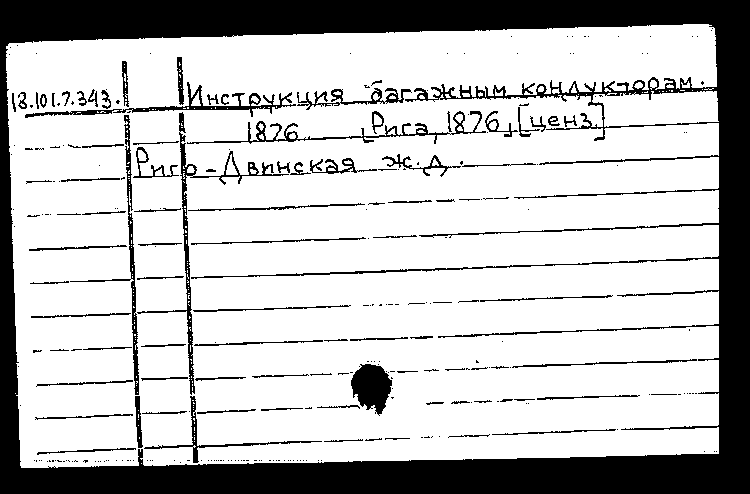 18.101.7.343. Инструкция багажным кондукторам.
1876 [Рига, 1876] [ценз.]
Риго-Двинская ж.д.